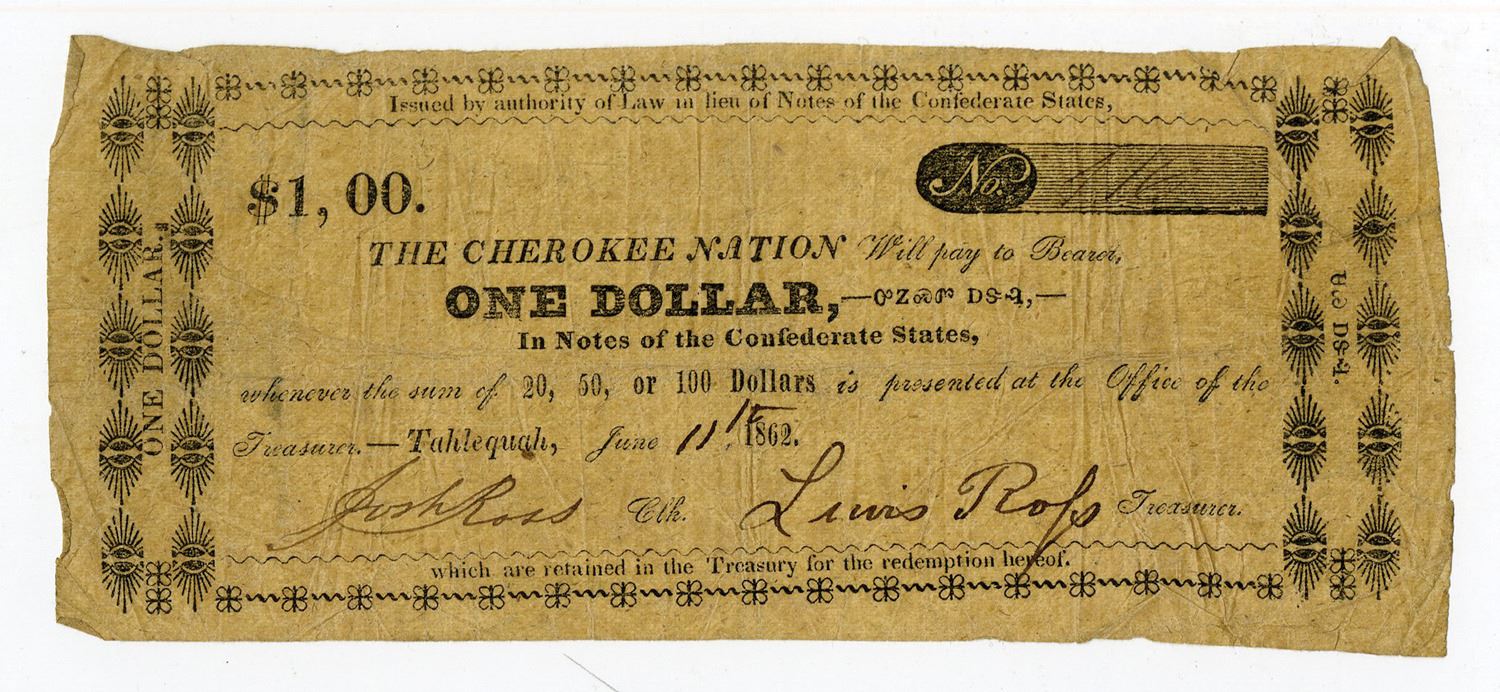 Issued by authority of Law in lieu of Notes of the Confederate States,
$1, 00.
No.
THE CHEROKEE NATION Will pay to Bearer,
ONE DOLLAR,—
In Notes of the Confederate States,
whenever the sum of 20, 50, or 100 Dollars is presented at the Office of the
Treasurer.—Tahlequah, June 11th, 1862.
Josh Ross Clk. Lewis Ross Treasurer.
which are retained in the Treasury for the redemption hereof.
ONE DOLLAR.